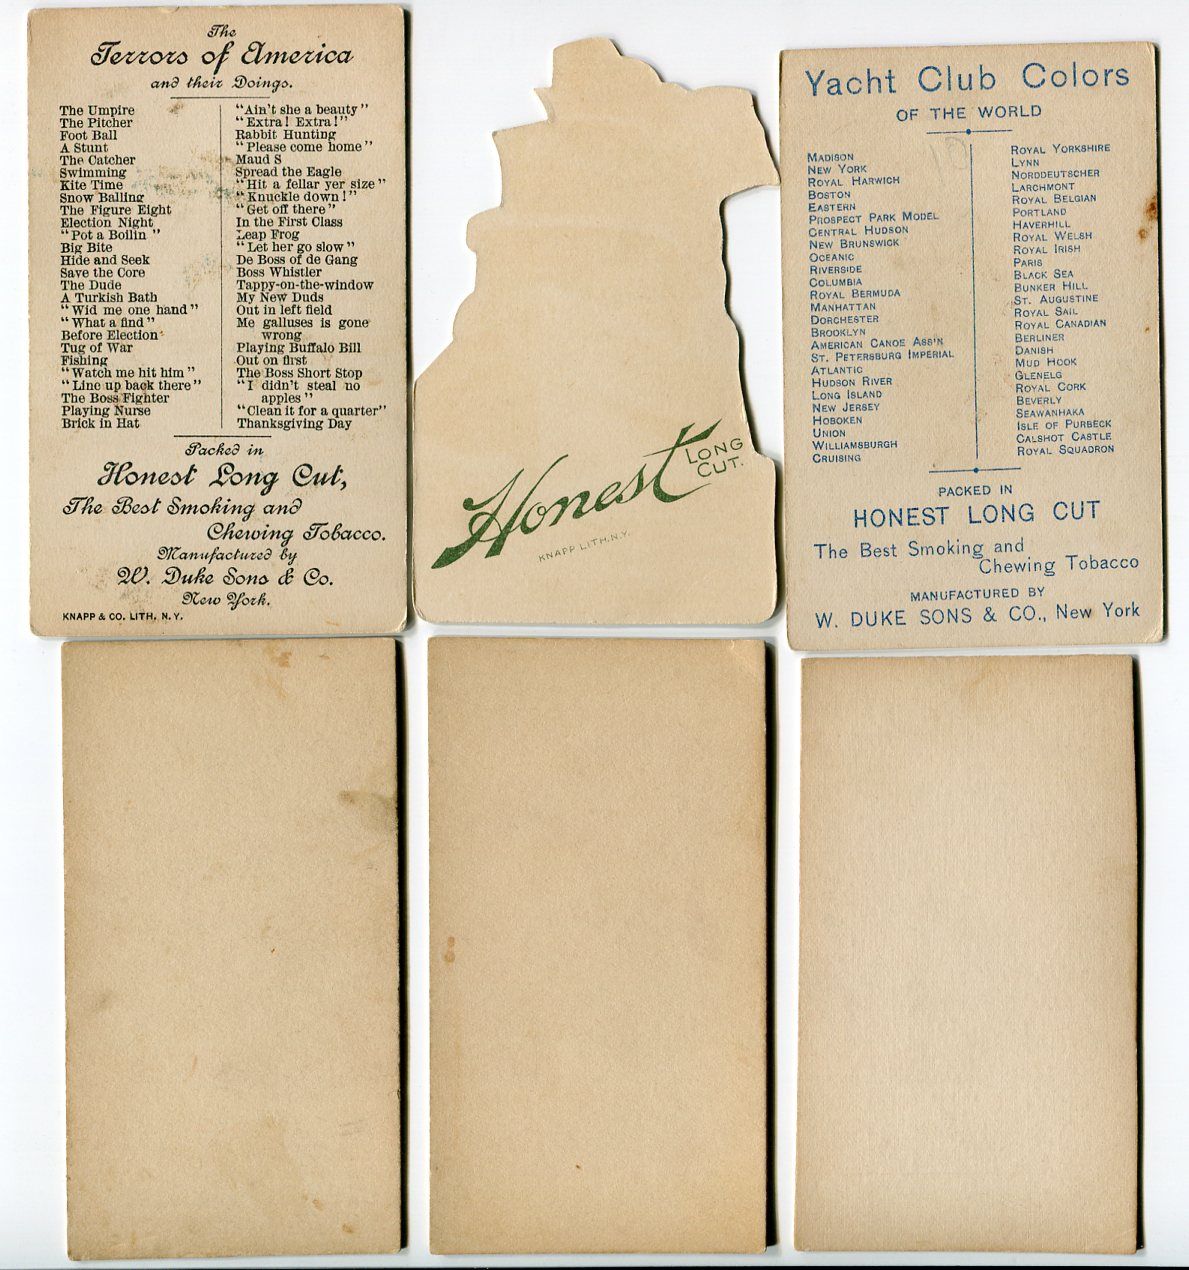 The
Terrors of America
and their Doings.
The Umpire
The Pitcher
Foot Ball
A Stunt
The Catcher
Swimming
Kite Time
Snow Balling
The Figure Eight
Election Night
"Pot a Boilin"
Big Bite
Hide and Seek
Save the Core
The Dude
A Turkish Bath
"Wid me one hand"
"What a find"
Before Election
Tug of War
Fishing
"Watch me hit him"
"Line up back there"
The Boss Fighter
Playing Nurse
Brick in Hat
"Ain't she a beauty"
"Extra! Extra!"
Rabbit Hunting
"Please come home"
Maud S
Spread the Eagle
"Hit a fellar yer size"
"Knuckle down!"
"Get off there"
In the First Class
Leap Frog
"Let her go slow"
De Boss of de Gang
Boss Whistler
Tappy-on-the-window
My New Duds
Out in left field
Me galluses is gone
wrong
Playing Buffalo Bill
Out on first
The Boss Short Stop
"I didn't steal no
apples"
"Clean it for a quarter"
Thanksgiving Day
Packed in
Honest Long Cut,
The Best Smoking and
Chewing Tobacco.
Manufactured by
W. Duke Sons & Co.
New York.
KNAPP & CO. LITH, N.Y.
Honest LONG
CUT.
KNAPP LITH.N.Y.
Yacht Club Colors
OF THE WORLD
MADISON
NEW YORK
ROYAL HARWICH
BOSTON
EASTERN
PROSPECT PARK MODEL
CENTRAL HUDSON
NEW BRUNSWICK
OCEANIC
RIVERSIDE
COLUMBIA
ROYAL BERMUDA
MANHATTAN
DORCHESTER
BROOKLYN
AMERICAN CANOE ASS'N
ST. PETERSBURG IMPERIAL
ATLANTIC
HUDSON RIVER
LONG ISLAND
NEW JERSEY
HOBOKEN
UNION
WILLIAMSBURGH
CRUISING
ROYAL YORKSHIRE
LYNN
NORDDEUTSCHER
LARCHMONT
ROYAL BELGIAN
PORTLAND
HAVERHILL
ROYAL WELSH
ROYAL IRISH
PARIS
BLACK SEA
BUNKER HILL
ST. AUGUSTINE
ROYAL SAIL
ROYAL CANADIAN
BERLINER
DANISH
MUD HOOK
GLENELG
ROYAL CORK
BEVERLY
SEAWANHAKA
ISLE OF PURBECK
CALSHOT CASTLE
ROYAL SQUADRON
PACKED IN
HONEST LONG CUT
The Best Smoking and
Chewing Tobacco
MANUFACTURED BY
W. DUKE SONS & CO., New York